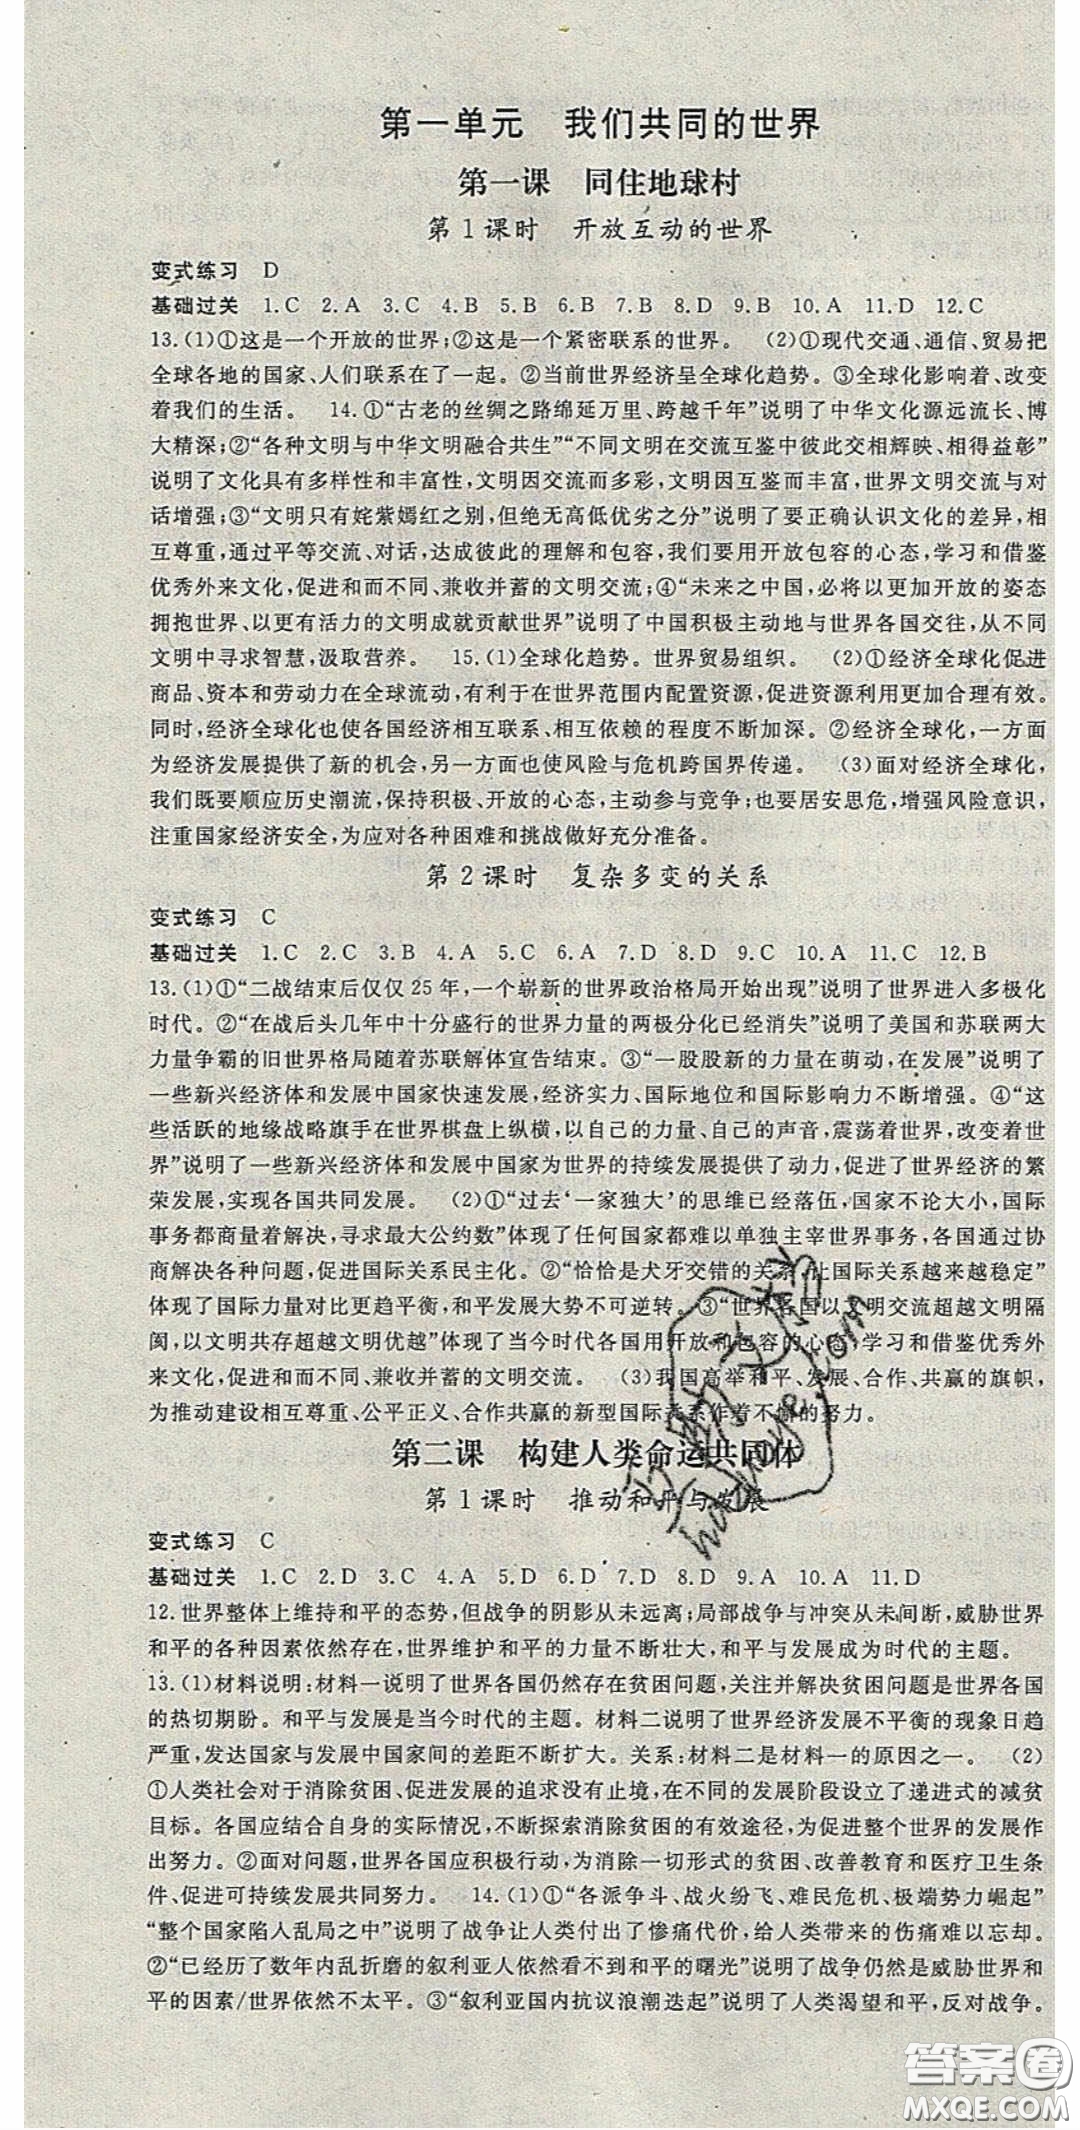 第一单元　我们共同的世界
第一课　同住地球村
第1课时　开放互动的世界
变式练习　D
基础过关　1.C　2.A　3.C　4.B　5.B　6.B　7.B　8.D　9.B　10.A　11.D　12.C
13.(1)①这是一个开放的世界;②这是一个紧密联系的世界。　(2)①现代交通、通信、贸易把
全球各地的国家、人们联系在了一起。②当前世界经济呈全球化趋势。③全球化影响着、改变
着我们的生活。　14.①“古老的丝绸之路绵延万里、跨越千年”说明了中华文化源远流长、博
大精深;②“各种文明与中华文明融合共生”“不同文明在交流互鉴中彼此交相辉映、相得益彰”
说明了文化具有多样性和丰富性,文明因交流而多彩,文明因互鉴而丰富,世界文明交流与对
话增强;③“文明只有姹紫嫣红之别,但绝无高低优劣之分”说明了要正确认识文化的差异,相
互尊重,通过平等交流、对话,达成彼此的理解和包容,我们要用开放包容的心态,学习和借鉴
优秀外来文化,促进和而不同、兼收并蓄的文明交流;④“未来之中国,必将以更加开放的姿态
拥抱世界、以更有活力的文明成就贡献世界”说明了中国积极主动地与世界各国交往,从不同
文明中寻求智慧,汲取营养。　15.(1)全球化趋势。世界贸易组织。　(2)①经济全球化促进
商品、资本和劳动力在全球流动,有利于在世界范围内配置资源,促进资源利用更加合理有效。
同时,经济全球化也使各国经济相互联系、相互依赖的程度不断加深。②经济全球化,一方面
为经济发展提供了新的机会,另一方面也使风险与危机跨国界传递。　(3)面对经济全球化,
我们既要顺应历史潮流,保持积极、开放的心态,主动参与竞争;也要居安思危,增强风险意识,
注重国家经济安全,为应对各种困难和挑战做好充分准备。
第2课时　复杂多变的关系
变式练习　C
基础过关　1.C　2.C　3.B　4.A　5.C　6.A　7.D　8.D　9.C　10.A　11.C　12.B
13.(1)①“二战结束后仅仅25年,一个崭新的世界政治格局开始出现”说明了世界进入多极化
时代。②“在战后头几年中十分盛行的世界力量的两极分化已经消失”说明了美国和苏联两大
力量争霸的旧世界格局随着苏联解体宣告结束。③“一股股新的力量在萌动,在发展”说明了
一些新兴经济体和发展中国家快速发展,经济实力、国际地位和国际影响力不断增强。④“这
些活跃的地缘战略旗手在世界棋盘上纵横,以自己的力量、自己的声音,震荡着世界,改变着世
界”说明了一些新兴经济体和发展中国家为世界的持续发展提供了动力,促进了世界经济的繁
荣发展,实现各国共同发展。　(2)①“过去‘一家独大’的思维已经落伍,国家不论大小,国际
事务都商量着解决,寻求最大公约数”体现了任何国家都难以单独主宰世界事务,各国通过协
商解决各种问题,促进国际关系民主化。②“恰恰是犬牙交错的关系,让国际关系越来越稳定”
体现了国际力量对比更趋平衡,和平发展大势不可逆转。③“世界各国以文明交流超越文明隔
阂,以文明共存超越文明优越”体现了当今时代各国用开放和包容的心态,学习和借鉴优秀外
来文化,促进和而不同、兼收并蓄的文明交流。　(3)我国高举和平、发展、合作、共赢的旗帜,
为推动建设相互尊重、公平正义、合作共赢的新型国际关系作着不懈的努力。
第二课　构建人类命运共同体
第1课时　推动和平与发展
变式练习　C
基础过关　1.C　2.D　3.C　4.A　5.D　6.D　7.D　8.D　9.A　10.A　11.D
12.世界整体上维持和平的态势,但战争的阴影从未远离;局部战争与冲突从未间断,威胁世界
和平的各种因素依然存在,世界维护和平的力量不断壮大,和平与发展成为时代的主题。
13.(1)材料说明:材料一说明了世界各国仍然存在贫困问题,关注并解决贫困问题是世界各国
的热切期盼。和平与发展是当今时代的主题。材料二说明了世界经济发展不平衡的现象日趋
严重,发达国家与发展中国家间的差距不断扩大。关系:材料二是材料一的原因之一。　(2)
①人类社会对于消除贫困、促进发展的追求没有止境,在不同的发展阶段设立了递进式的减贫
目标。各国应结合自身的实际情况,不断探索消除贫困的有效途径,为促进整个世界的发展作
出努力。②面对问题,世界各国应积极行动,为消除一切形式的贫困、改善教育和医疗卫生条
件、促进可持续发展共同努力。　14.(1)①“各派争斗、战火纷飞、难民危机、极端势力崛起”
“整个国家陷入乱局之中”说明了战争让人类付出了惨痛代价,给人类带来的伤痛难以忘却。
②“已经历了数年内乱折磨的叙利亚人依然看不到和平的曙光”说明了战争仍然是威胁世界和
平的因素/世界依然不太平。③“叙利亚国内抗议浪潮迭起”说明了人类渴望和平,反对战争。
答案圈
MXQE.COM